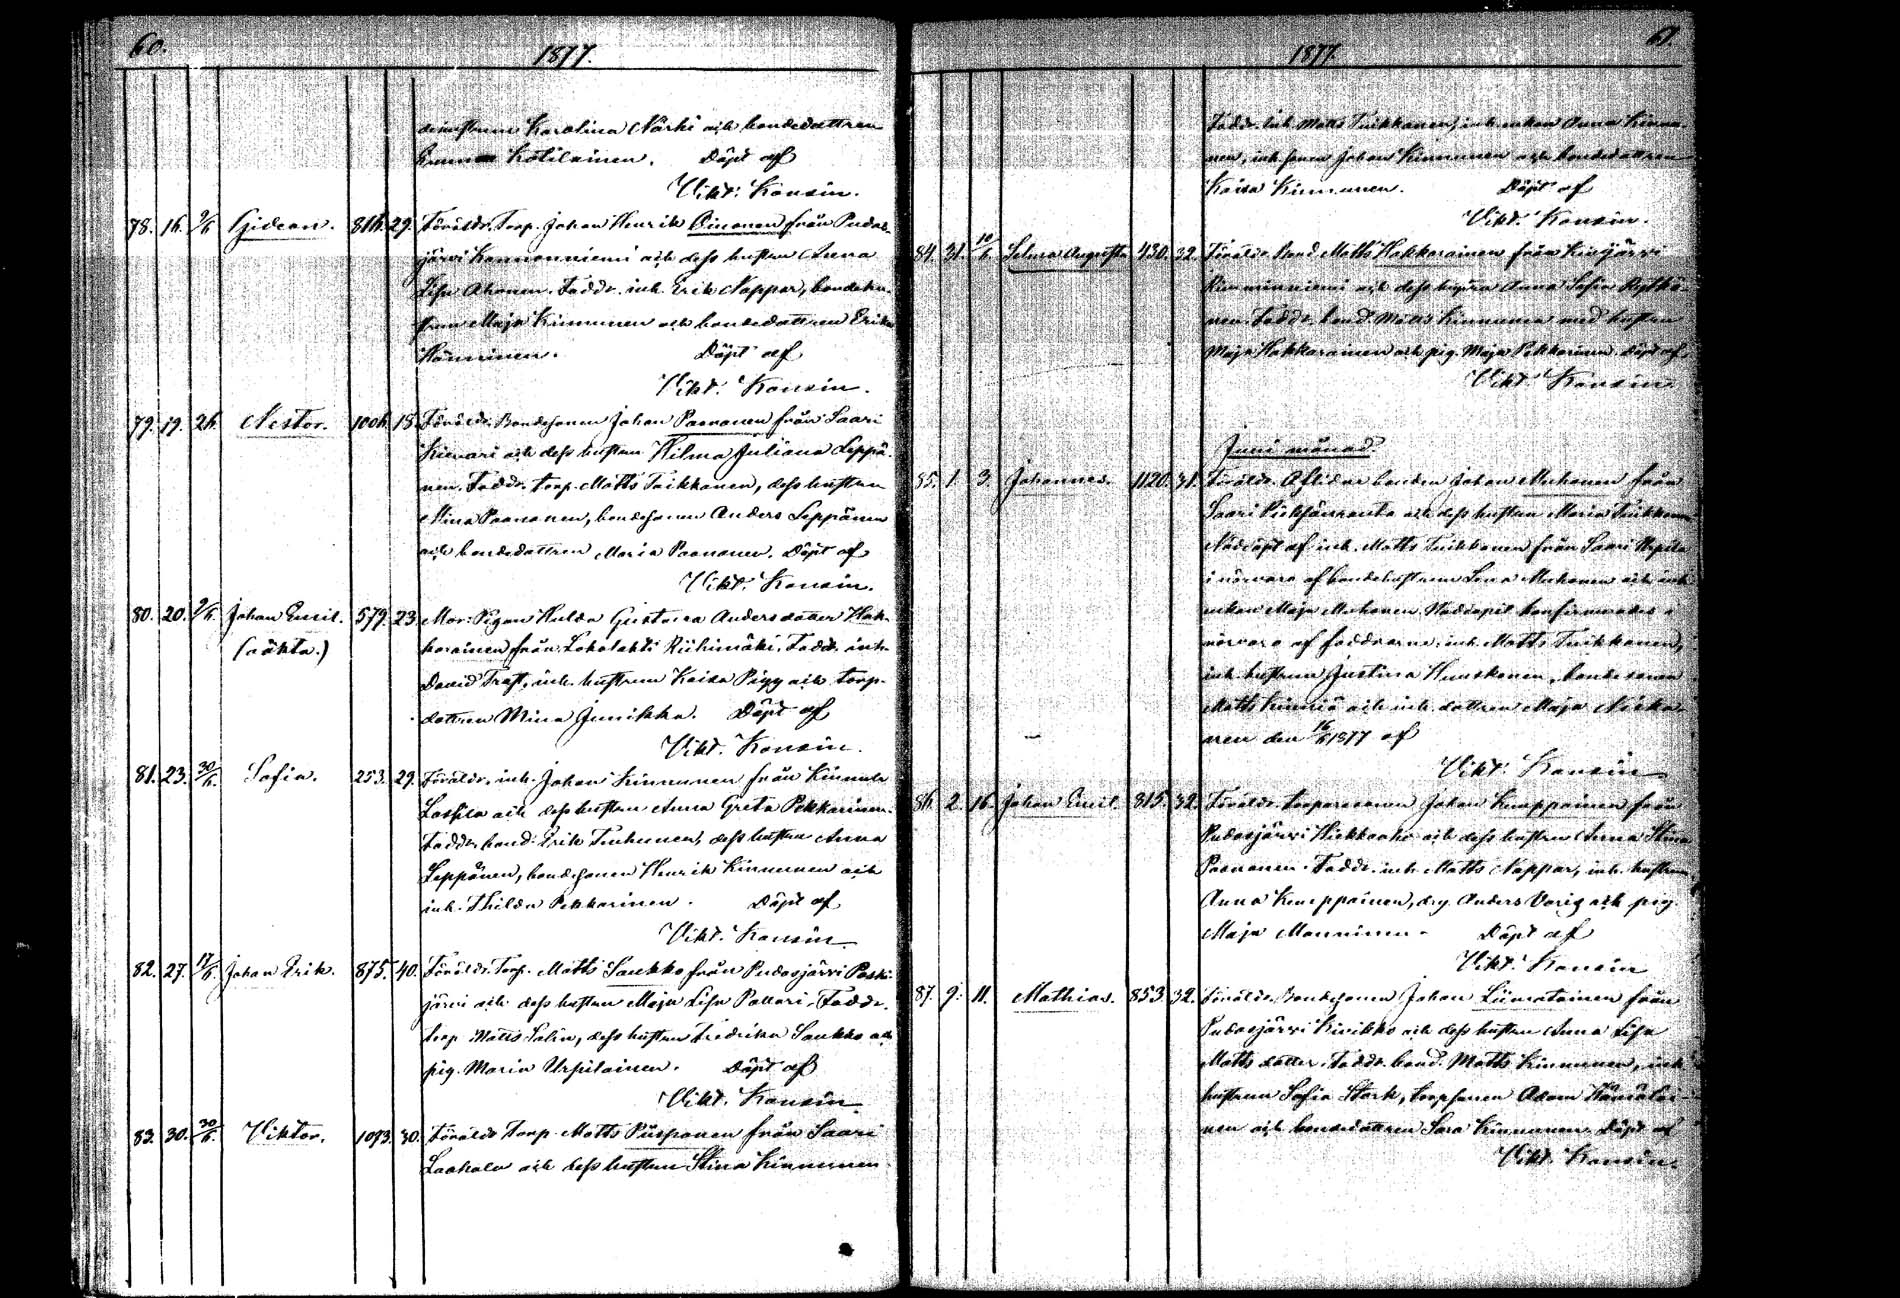 60.
1877.
Karolina Närhi och bondedattren
Kotilainen. Döpt af
Vikt. Konsin.
78. 16. Gideon. 816. 29. Föräldr. Torp. Johan Henrik Oinonen från Pudas-
järvi Kannonniemi och dess hustru Anna
Lisa Ahonen. Faddr. inh. Erik Noppar, bondehu-
strun Maja Kinnunen och bondedattren Erika
Hänninen. Döpt af
Vikt. Konsin.
79. 19. 26. Nestor. 1006. 18. Föräldr. Bondesonen Johan Paananen från Saari
Kienari och dess hustru Hilma Juliana Leppä-
nen. Faddr. torp. Matts Tuikkanen, dess hustru
Mina Paananen, bondesonen Anders Leppänen
och bondedattren Maria Paananen. Döpt af
Vikt. Konsin.
80. 20. Johan Emil. 579. 23. Mor: Pigan Hulda Gustava Andersdotter Hak-
(oäkta.) karainen från Lokolahti Riihimäki. Faddr. inh.
David Trast, inh. hustrun Kaisa Pigg och torp.
dattren Mina Junikka. Döpt af
Vikt. Konsin.
81. 23. 30/5. Sofia. 253. 29. Föräldr. inh. Johan Kinnunen från Kinnula
Lassila och dess hustru Anna Greta Pekkarinen.
Faddr. bond. Erik Turhunen, dess hustru Anna
Leppänen, bondesonen Henrik Kinnunen och
inh. Thilda Pekkarinen. Döpt af
Vikt. Konsin.
82. 27. 17/6. Johan Erik. 875. 40. Föräldr. Torp. Matts Saukko från Pudasjärvi Paski-
järvi och dess hustru Maja Lisa Pollari. Faddr.
torp. Matts Salin, dess hustru Fredrika Saukko och
pig. Maria Urpilainen. Döpt af
Vikt. Konsin.
83. 30. Viktor. 1093. 30. Föräldr. Torp. Matts Piispanen från Saari
Laahala och dess hustru Stina Kinnunen.
61.
1877.
Faddr. inh. Matts Tuikkanen, inh. enkan Anna Kinnu-
nen, inh. sonen Johan Kinnunen och bondedattren
Kaisa Kinnunen. Döpt af
Vikt. Konsin.
84. 31. 10/6 Selma Augusta 430. 32. Föräldr. Bond. Matts Hakkarainen från Kivijärvi
och dess hustru Anna Sofia Rytkö-
nen. Faddr. bond. Matts Kinnunen med hustru
Maja Hakkarainen och pig. Maja Pekkarinen. Döpt af
Vikt. Konsin.
Juni månad.
85. 1. 3. Johannes. 1120. 31. Föräldr. Aflidne bonden Johan Muhonen från
Saari och dess hustru Maria Tuikkanen
Nöddöpt af inh. Matts Tuikkanen från Saari Urpila
i närvaro af bondehustrun Lena Muhonen och inh.
enkan Maja Muhonen. Nöddopet konfirmerades i
närvaro af faddrarne: inh. Matts Tuikkanen,
inh. hustrun Justina Huuskonen, bondesonen
Matts Kinniä och inh. dattren Maja
den 16/6 1877 af
Vikt. Konsin
86. 2. 16. Johan Emil. 815. 32. Föräldr. torparesonen Johan Kumppainen från
Pudasjärvi Hiekkaaho och dess hustru Anna Stina
Paananen. Faddr. inh. Matts Noppar, inh. hustrun
Anna Kemppainen, drg. Anders Varig och pig.
Maja Manninen. Döpt af
Vikt. Konsin
87. 9. 11. Mathias. 853. 32. Föräldr. Bondesonen Johan Liimatainen från
Pudasjärvi Kivikko och dess hustru Anna Lisa
Matts datter. Faddr. bond. Matts Kinnunen, inh.
hustrun Sofia Stark, torpsonen Adam Hämäläi-
nen och bondedattren Sara Kinnunen. Döpt af
Vikt. Konsin.